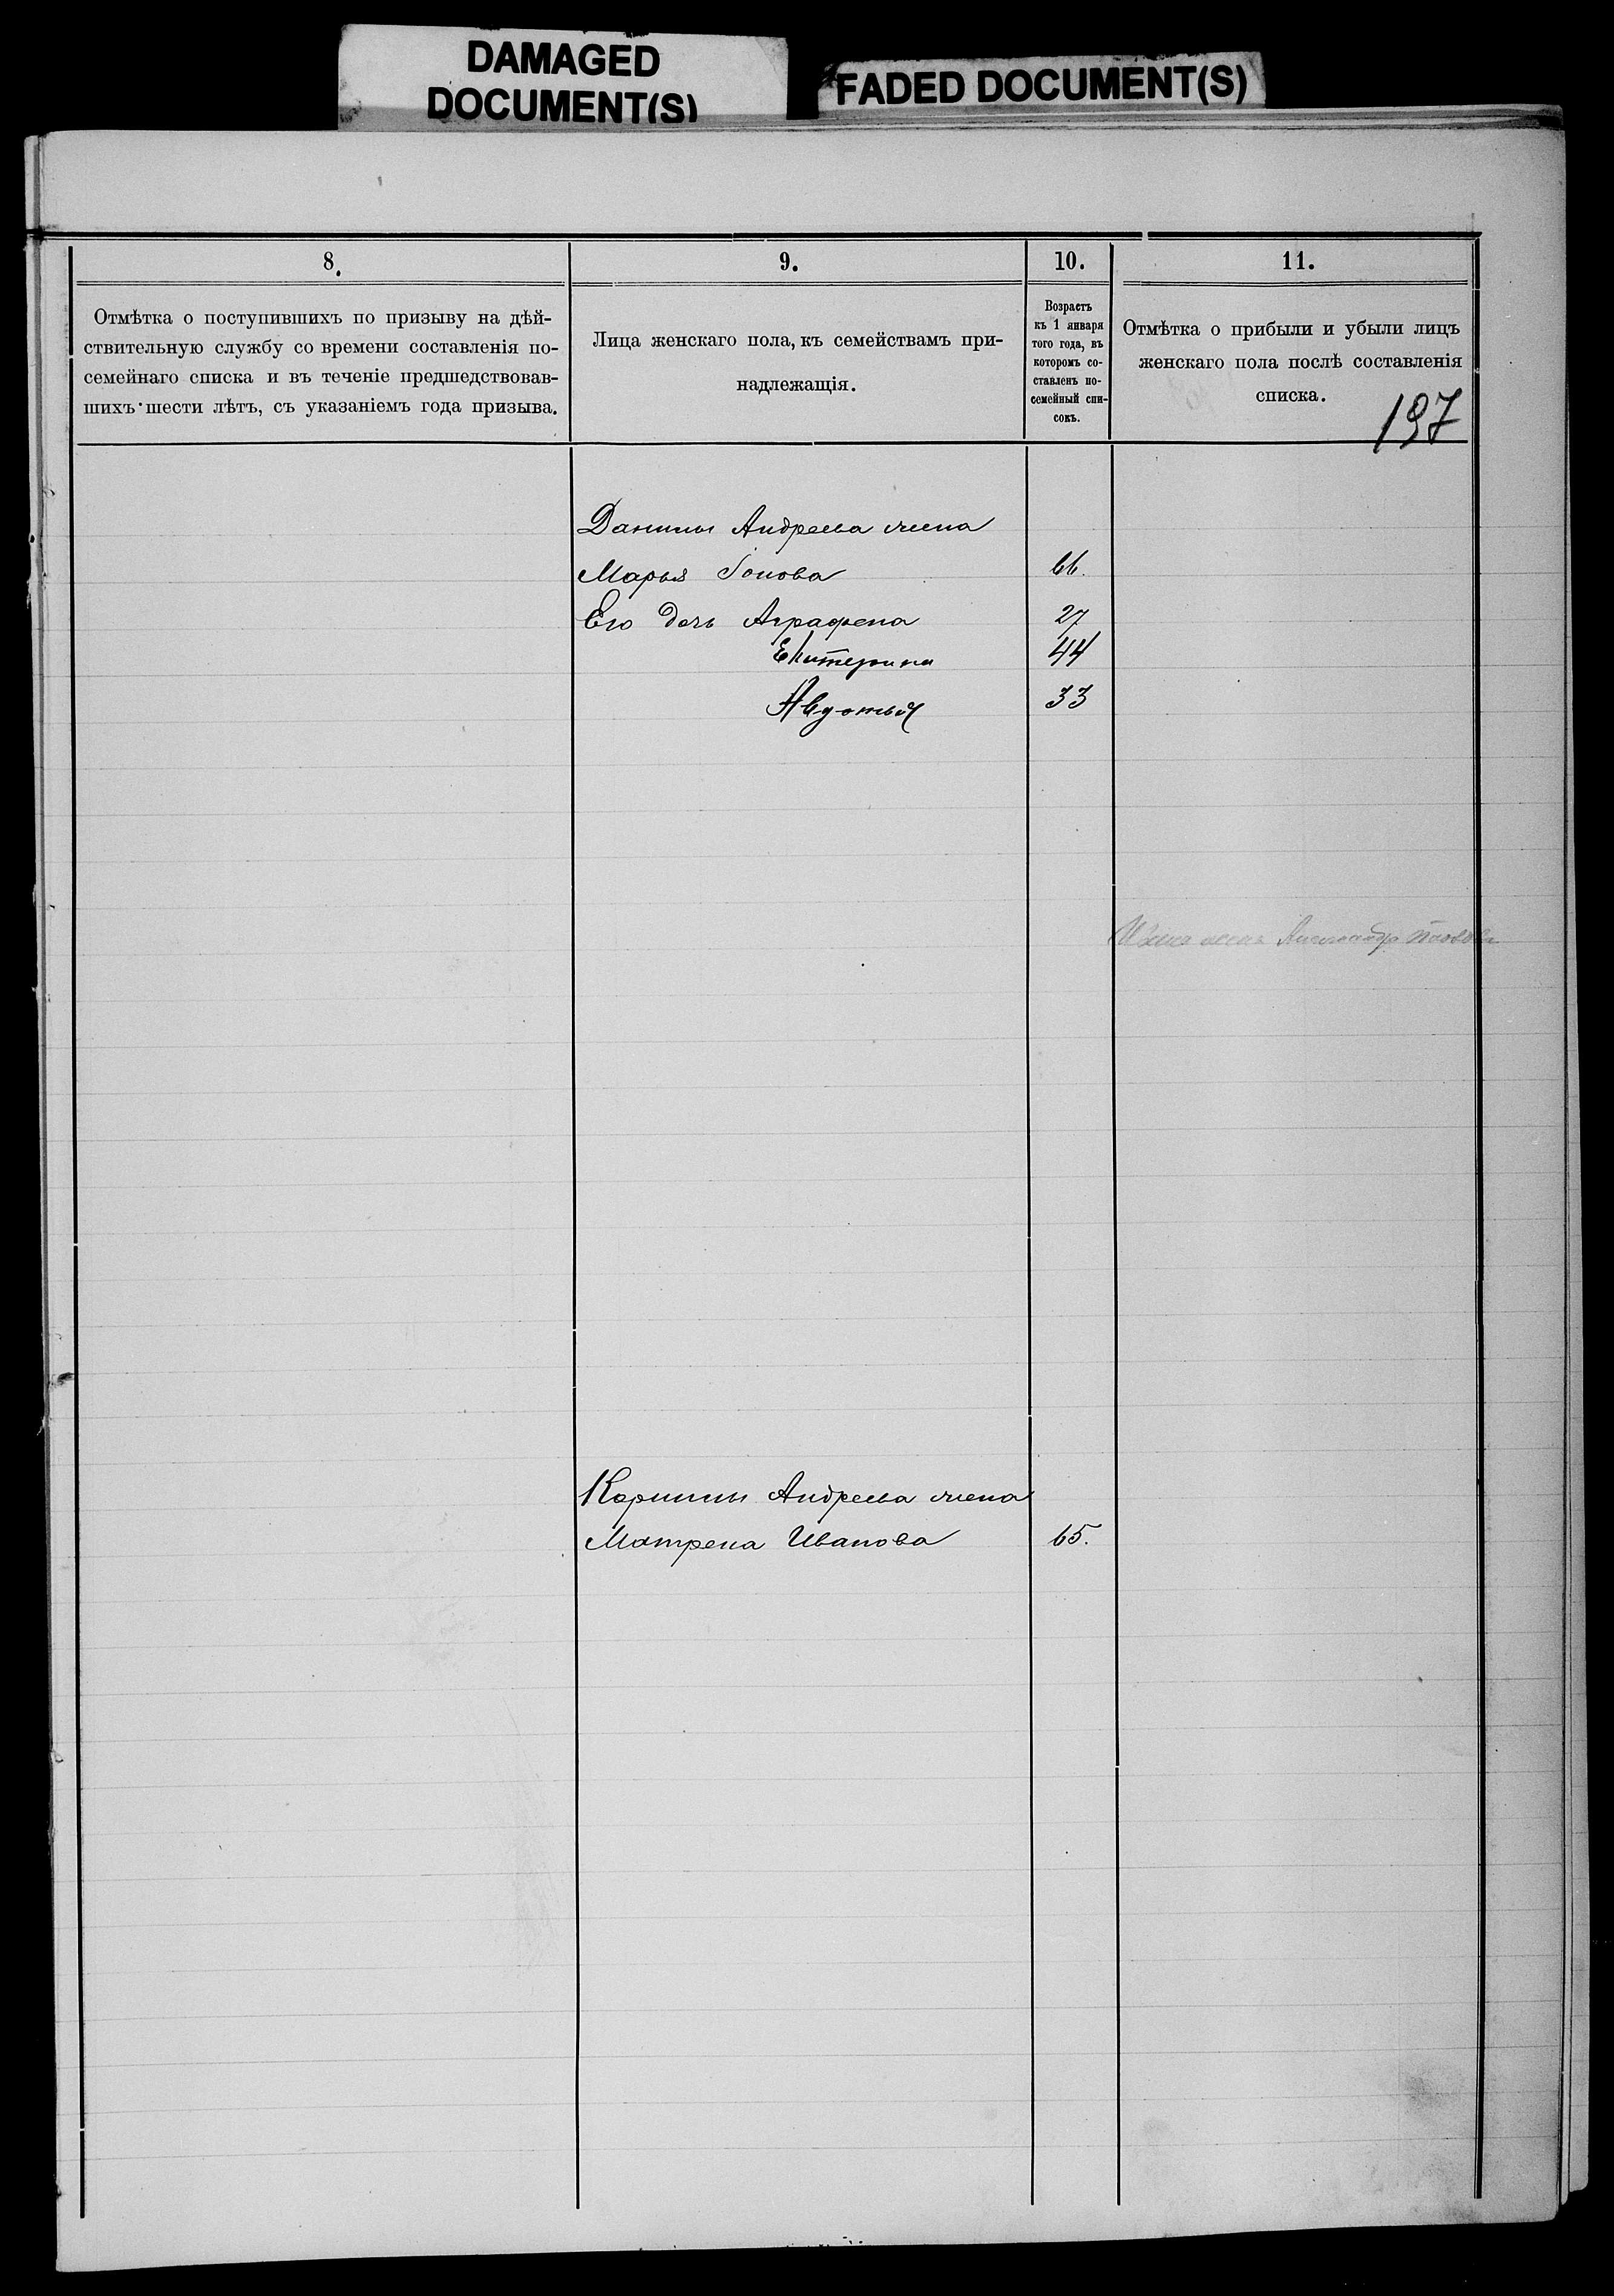 DAMAGED
DOCUMENT(S)
FADED DOCUMENT(S)
8.
Отмѣтка о поступившихъ по призыву на дѣй-
ствительную службу со времени составленія по-
семейнаго списка и въ теченіе предшедствовав-
шихъ шести лѣтъ, съ указаніемъ года призыва.
9.
Лица женскаго пола, къ семействамъ при-
надлежащія.
10.
Возрастъ
къ 1 января
того года, въ
которомъ со-
ставленъ по-
семейный спи-
сокъ.
11.
Отмѣтка о прибыли и убыли лицъ
женскаго пола послѣ составленія
списка.
197
Данилы Андреева жена
Марья Іонова 66.
Его дочь Аграфена 27
Екатерина 44
Авдотья 33
Карпилы Андреева жена
Матрена Иванова 65.